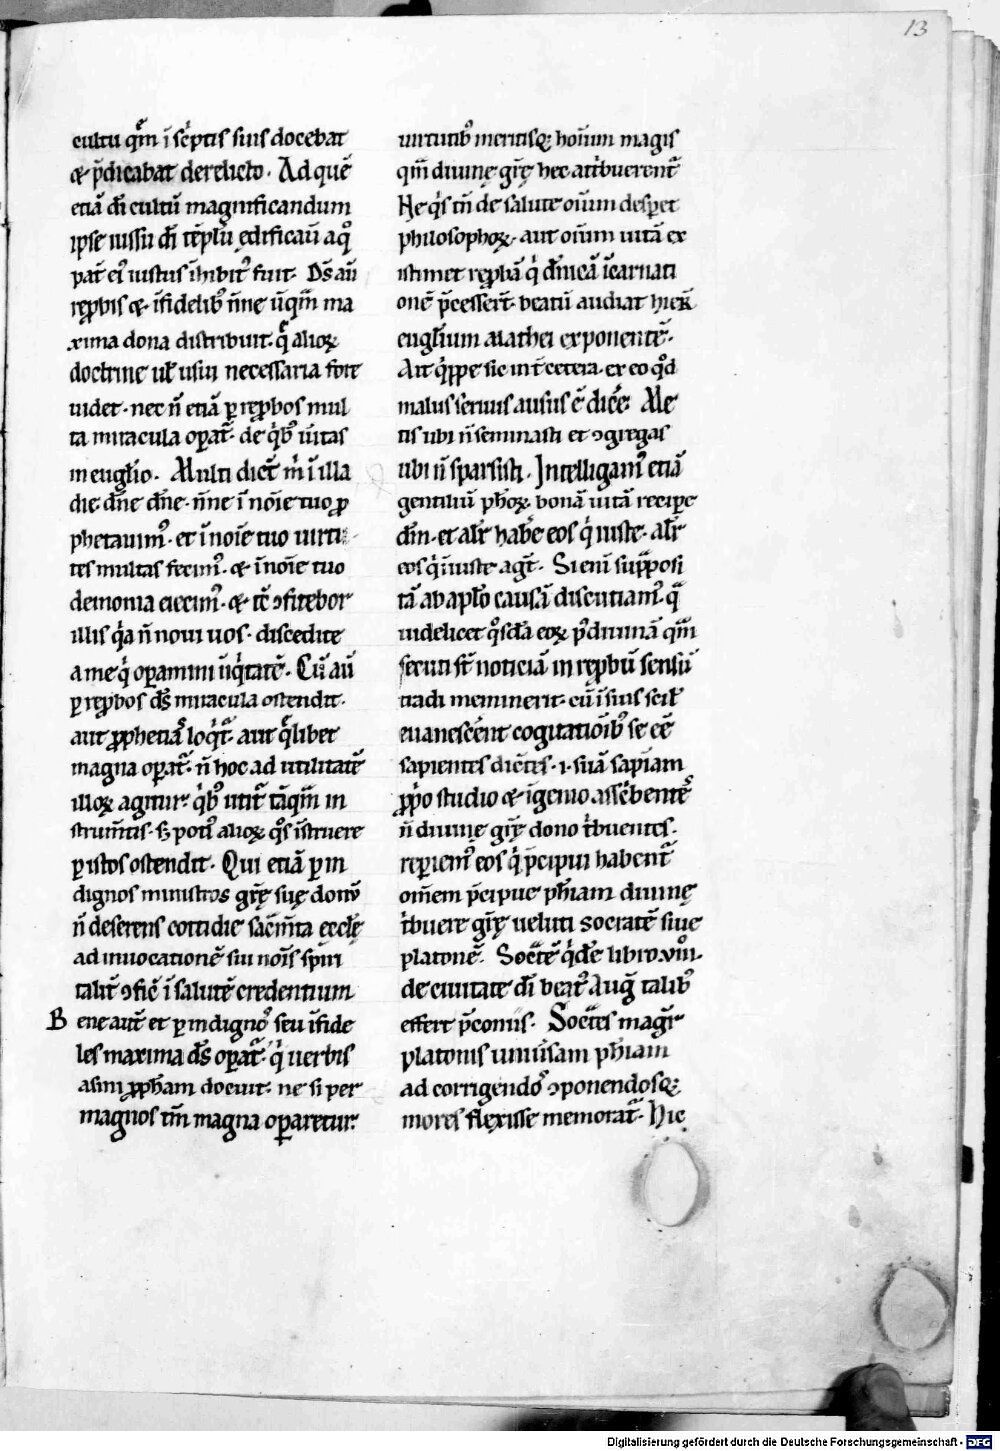 13
cultu qm̄ ī sc̓ptis suis docebat
⁊ p̄dicabat derelicto. Ad quē
etiā dī cultū magnificandum
ipse iussu dī tēplū ędificaū a qͦ
pat̄ eiꝰ iustus īhibitꝰ fuit. Ds̄ aū
rep̱bis ⁊ īfidelibꝰ n̄ne ūqm̄ ma
xima dona distribuit. q̄ alioꝝ
doctrine ul̄ usui necessaria fore
uidet. nec n̄ etiā ꝑ rep̱bos mul
ta miracula oꝑat̄. de qͥbꝰ ūitas
in euḡlio. Multi dicēt m̄ ī illa
die. dn̄e dn̄e. n̄ne ī noīe tuo ꝓ
phetauimꝰ. et ī noīe tuo uirtu
tes multas fecimꝰ. ⁊ ī noīe tuo
demonia eiecimꝰ. ⁊ tc̄ ꝯfitebor
illis qͥa n̄ noui uos. discedite
a me qͥ oꝑamini iīqͥtatē. Cū aū
ꝑ rep̱bos ds̄ miracula ostendit.
aut ꝓphetiā loqͥt̄. aut qͣlibet
magna oꝑat̄. n̄ hoc ad utilitatē
illoꝝ agitur. qͥbꝰ utit̄ tāqm̄ in
strum̄tis. s; potiꝰ alioꝝ qͦs īstruere
ꝑ istos ostendit. Qui etiā ꝑ in
dignos ministros gr̄ę suę donū
n̄ deserens cottidie sacͣm̄ta ęccl̄ę
ad inuocationē sui noīs sp̄m
talit̄ ꝯfic̄ ī salutē credentium
Bene aut̄ et ꝑ indignoꝰ seu īfide
les maxima ds̄ oꝑat̄. qͥ uerbis
asini ꝓph̄am docuit. ne si per
magnos tm̄ magna oꝑaretur.
uirtutibꝰ meritisq; hoīum magis
qm̄ diuinę gr̄ę hec attͥbuerent̄
He qͥs tn̄ de salute oīum desꝑet
philosophoꝝ. aut oīum uitā ex
istimet rep̱bā qͥ dn̄icā īcarnati
onē p̄cesser̄t. beatū audiat hier̄
euḡlium mathei exponentē.
Ait qͥppe sic int̄ cetera. ex eo qͦd
malus seruus ausus ē dic̄e. Me
tis ubi n̄ seminasti et ꝯgregas
ubi n̄ sparsisti. Intelligamꝰ etiā
gentiliū ph̄oꝝ. bonā uitā recipe
dn̄m. et alit̄ habe eos qͥ iuste. alit̄
eos qͥ īiuste agt̄. Si eni suꝑposi
tā ab aplo causā discutiamꝰ. qͣ
uidelicet qͦsdā eoꝝ p̄ diuinā qͣm̄
secuti st̄ noticiā in rep̱bū sensū
tradi meminerit. cū ī suis scil̄
euanescent cogitatiōibꝰ se eē
sapientes dicētes. i. suā sapīam
ꝓpͥo studio ⁊ īgenio asscͥbentes
n̄ diuinę gr̄ę dono tͥbuentes.
reperiemꝰ eos qͥ p̄cipui habent̄
om̄em p̄cipue ph̄iam diuinę
tͥbuere gr̄ę ueluti socratē siue
platonē. Socͣtē qͥdē libro. viiiͦ.
de ciuitate dī beatꝰ Auḡ talibꝰ
effert p̄coniis. Socͣtes magr̄
platonis uniūsam ph̄iam
ad corrigendoꝰ ꝯponendosq;
mores flexisse memorat̄. Hic
Digitalisierung gefördert durch die Deutsche Forschungsgemeinschaft - DFG